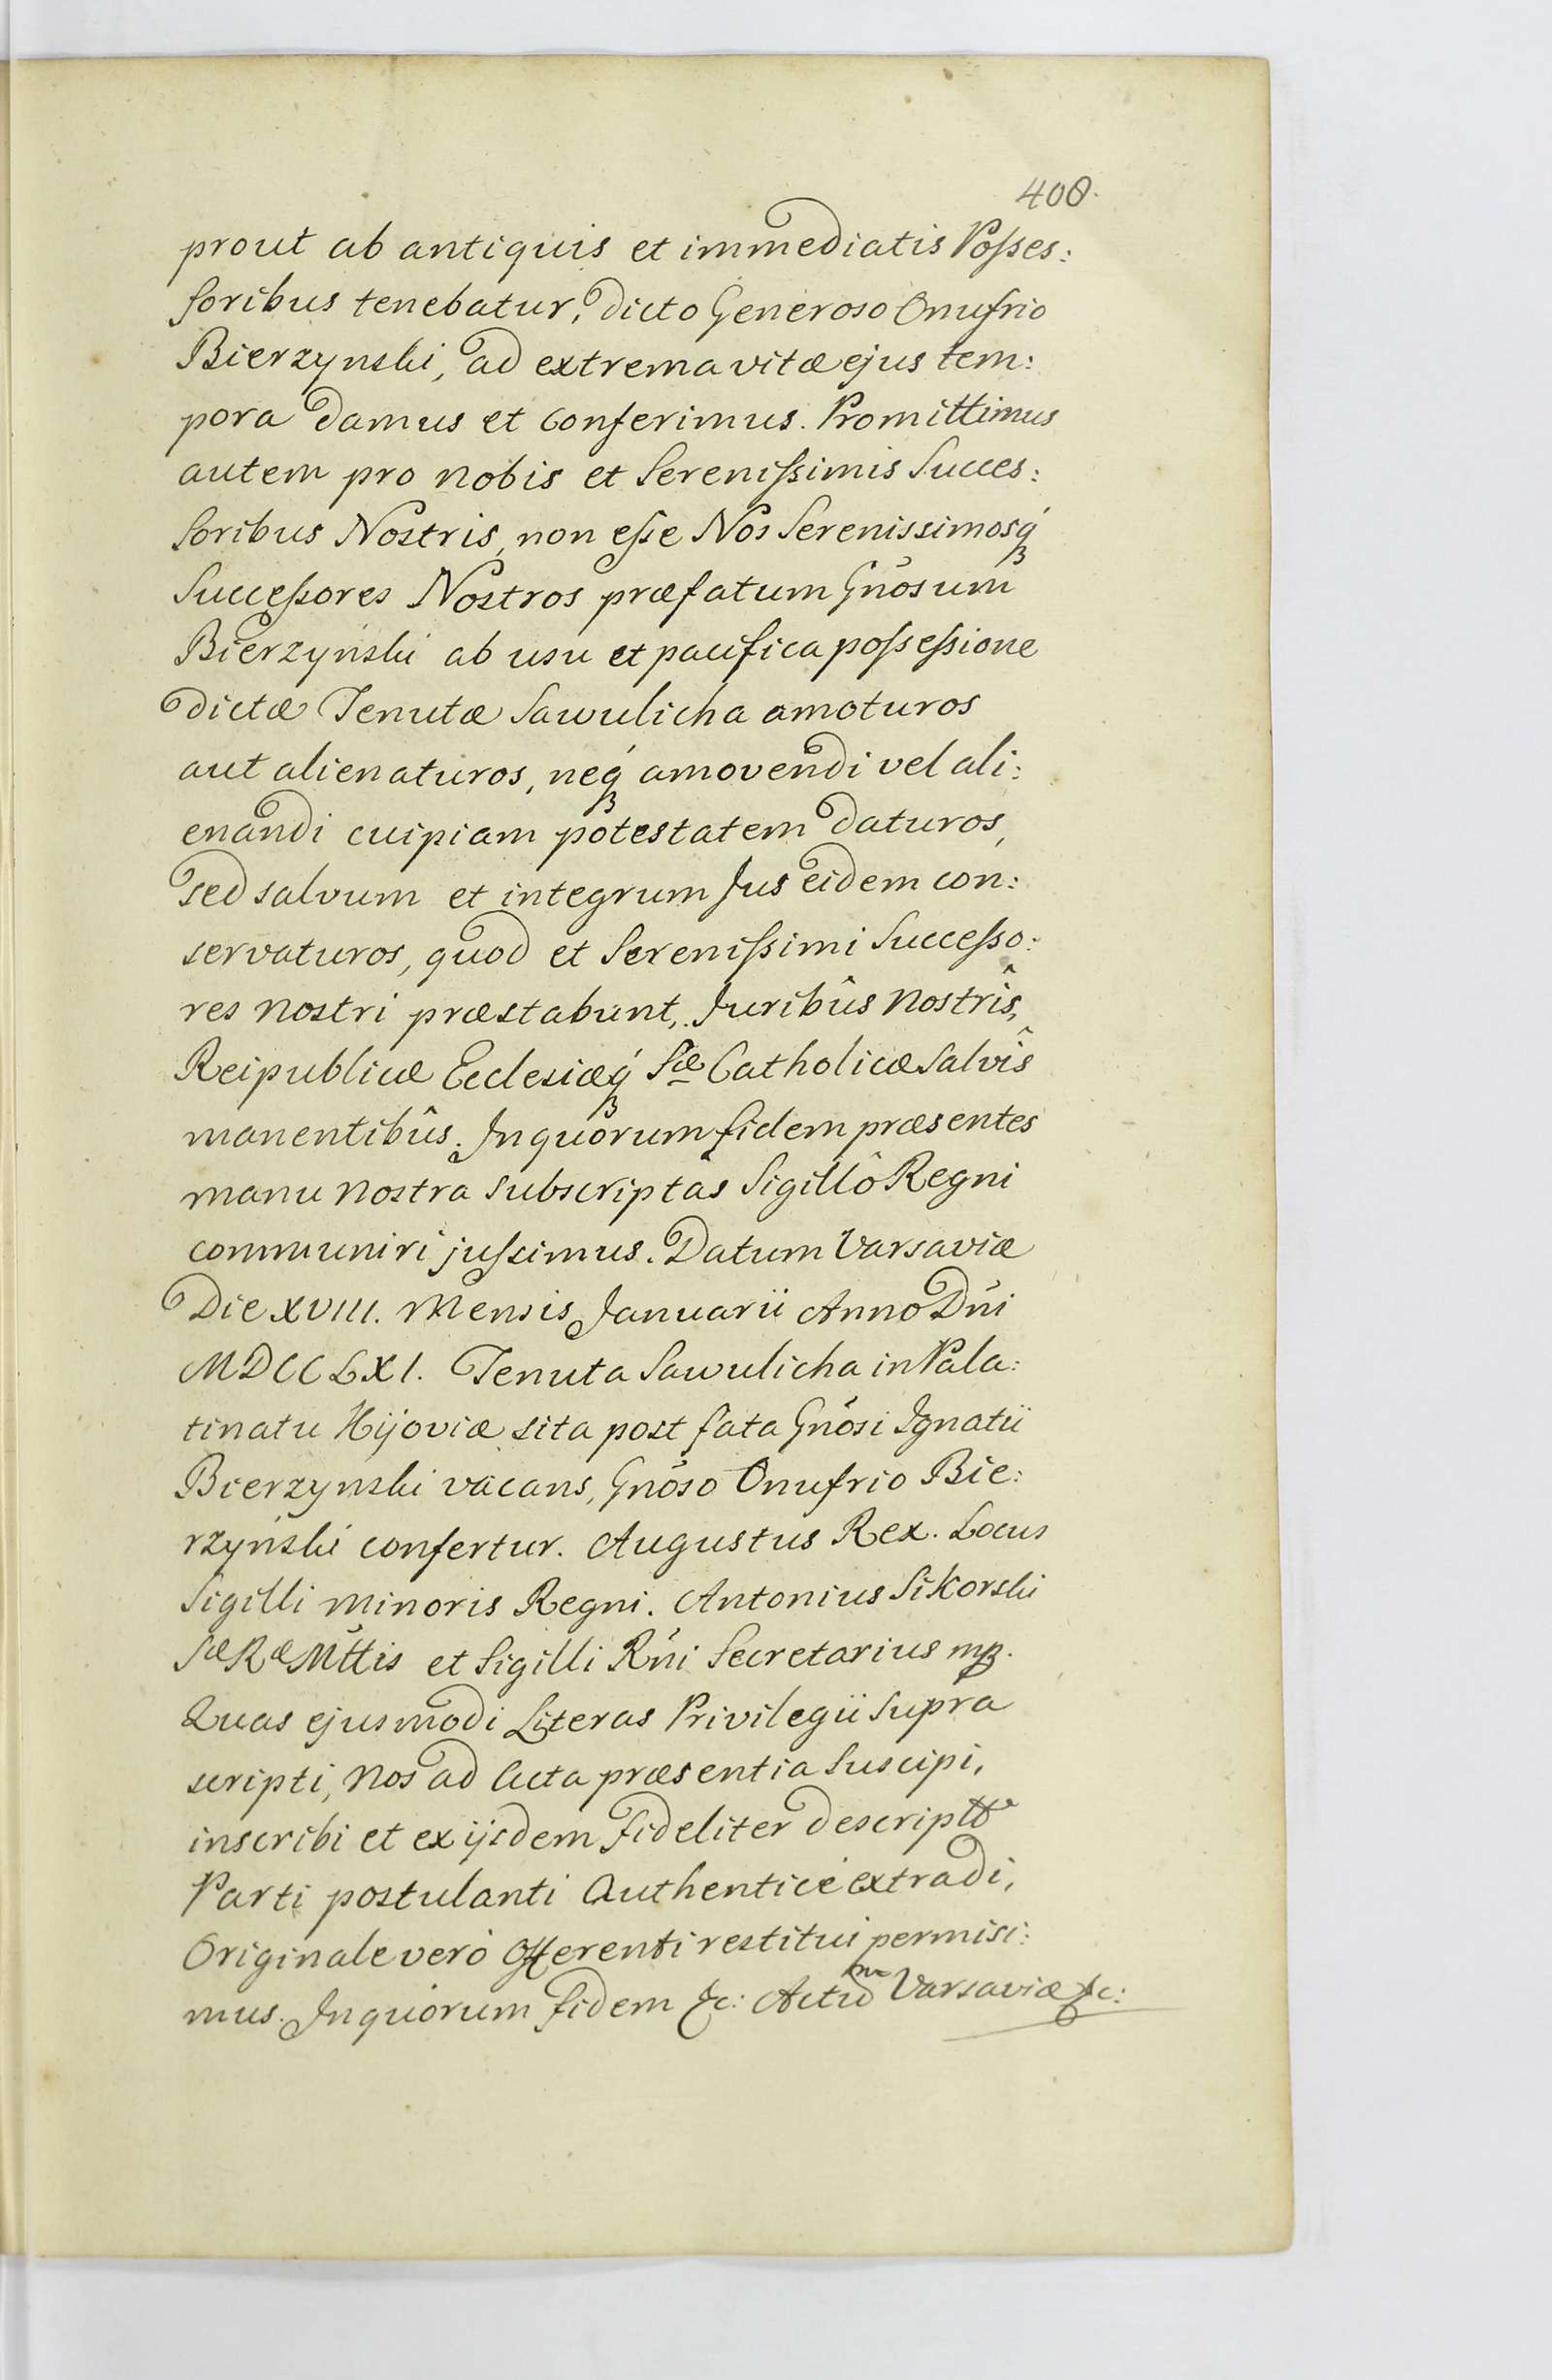 408.
prout ab antiquis et immediatis Poſses:
ſoribus tenebatur, dicto Generoso Onufrio
Bierzynski, ad extrema vitæ ejus tem:
pora damus et conferimus. Promittimus
autem pro nobis et Sereniſsimis Succes:
soribus Nostris, non eſse Nos Serenissimosq́ꝫ
Succeſsores Nostros præfatum Gńosum
Bierzyński ab usu et pacifica poſseſsione
dictæ Tenutæ Sawulicha amoturos
aut alienaturos, neq́ꝫ amovendi vel ali:
enandi cuipiam potestatem daturos,
sed salvum et integrum Jus eidem con:
servaturos, quod et Sereniſsimi Succeſso:
res nostri præstabunt, Juribûs nostrîs,
Reipublicæ Ecclesiæq́ꝫ Sæ Catholicæ salvîs
manentibûs. In quorum fidem præsentes
manu nostra subscriptas Sigillô Regni
communiri juſsimus. Datum Varsaviæ
Die XVIII. Mensis Januarii Anno Dńi
MDCCLXI. Tenuta Sawulicha in Pala:
tinatu Kijoviæ sita post fata Gńosi Ignatii
Bierzynski vacans, Gńoso Onufrio Bie:
rzyński confertur. Augustus Rex. Locus
Sigilli minoris Regni. Antonius Sikorski
Sæ Ræ Mttis et Sigilli Rńi Secretarius mp.
Quas ejusmodi Literas Privilegii supra
scripti, nos ad Acta præsentia suscipi,
inscribi et ex ijsdem fideliter descriptas
Parti postulanti Authenticè extradi,
Originale verò Offerenti restitui permisi:
mus. In quorum fidem &c: Actum Varsaviæ &c: